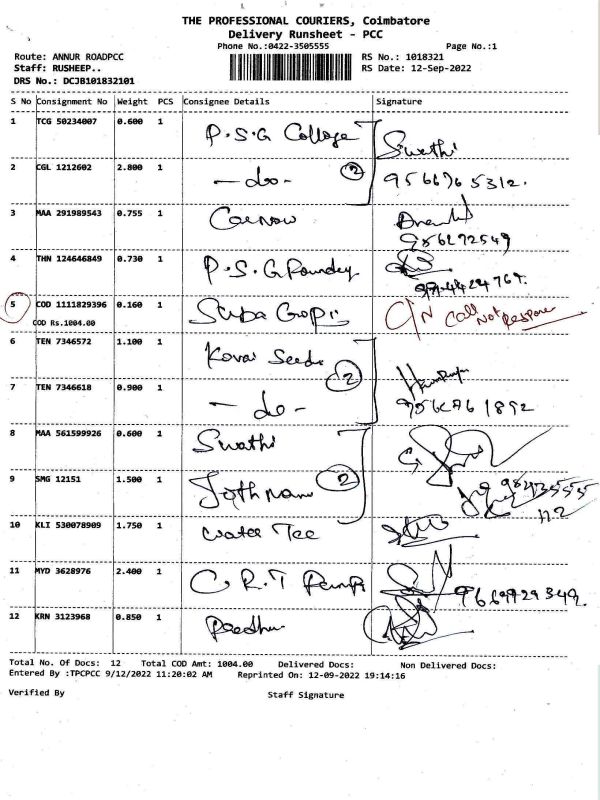 THE PROFESSIONAL COURIERS, Coimbatore
Delivery Runsheet - PCC
Phone No.:0422-3505555 Page No.:1
Route: ANNUR ROADPCC RS No.: 1018321
Staff: RUSHEEP.. RS Date: 12-Sep-2022
DRS No.: DCJB101832101
S No Consignment No Weight PCS Consignee Details Signature
1 TCG 50234007 0.600 1 P.S.G College Swathi
2 CGL 1212602 2.800 1 -do- 2 9566765312.
3 MAA 291989543 0.755 1
4 THN 124646849 0.730 1 P.S.G Foundry
5 COD 1111829396 0.160 1 Suba Gopi C/N Call Not Respone
COD Rs.1004.00
6 TEN 7346572 1.100 1 Kovai Seeds
2
7 TEN 7346618 0.900 1 -do-
8 MAA 561599926 0.600 1 Swathi
9 SMG 12151 1.500 1 2
10 KLI 530078909 1.750 1 Water Tec
11 MYD 3628976 2.400 1 C.R.I Pumps
12 KRN 3123968 0.850 1
Total No. Of Docs: 12 Total COD Amt: 1004.00 Delivered Docs: Non Delivered Docs:
Entered By :TPCPCC 9/12/2022 11:20:02 AM Reprinted On: 12-09-2022 19:14:16
Verified By Staff Signature